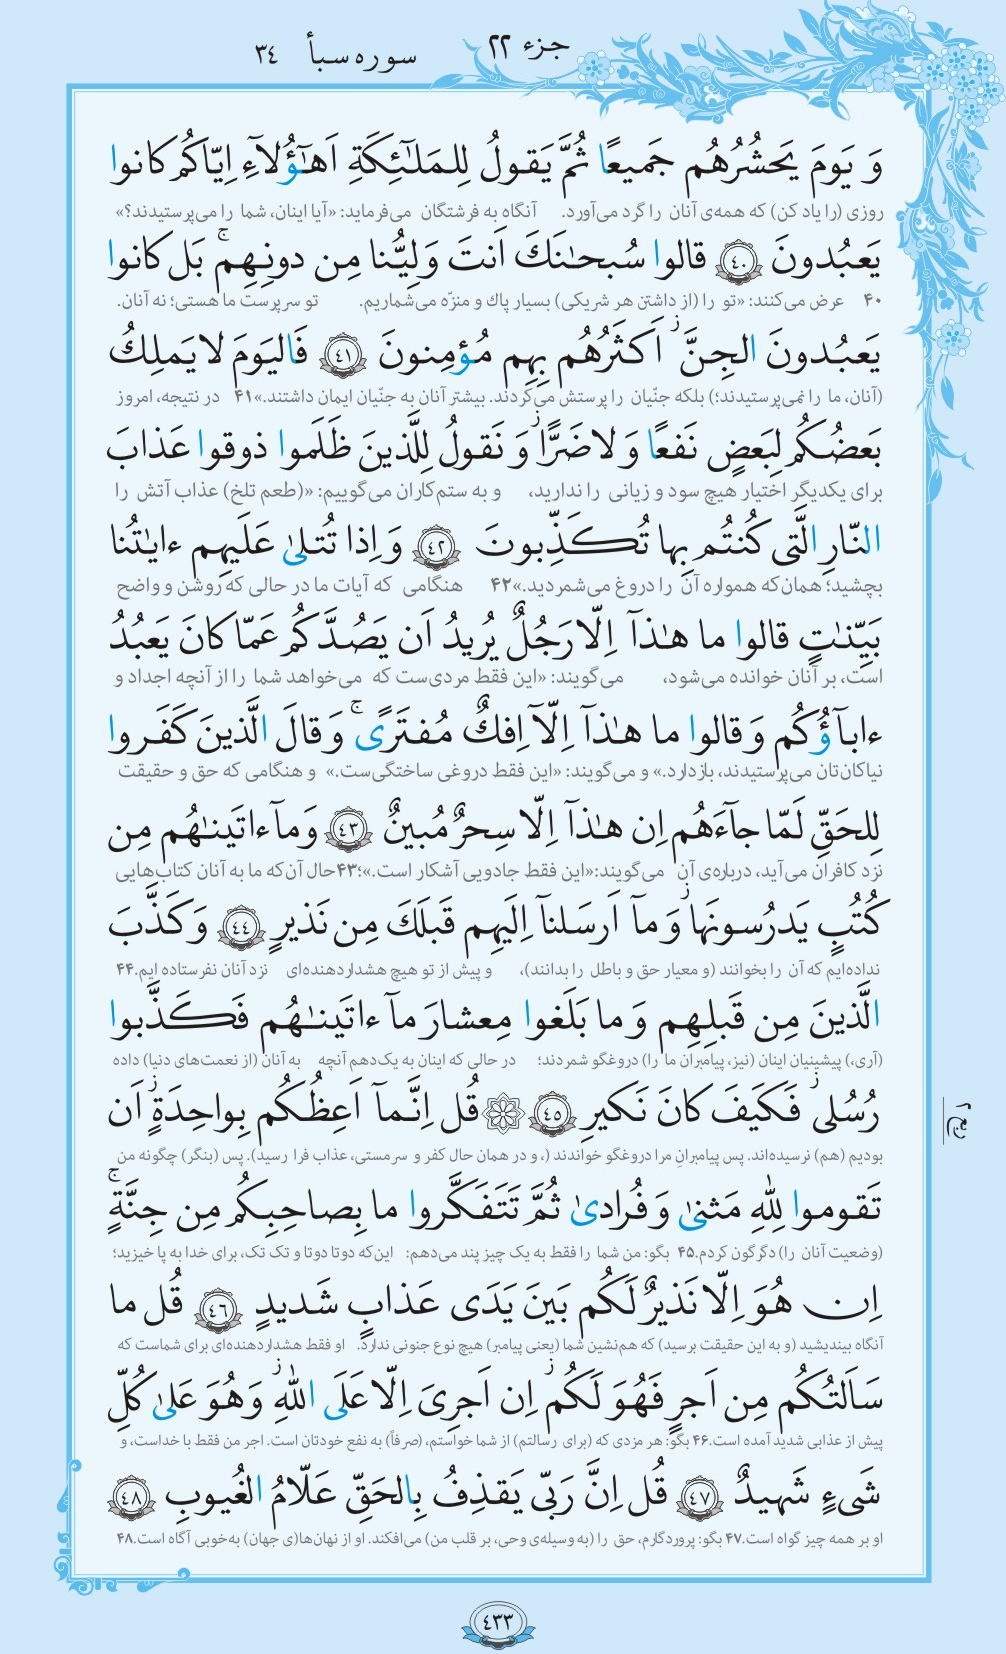 جزء ۲۲ سوره سبأ ۳٤
وَ يَومَ يَحشُرُهُم جَميعًا ثُمَّ يَقولُ لِلمَلـٰٓئِكَةِ اَهـٰٓؤُلآءِ اِيّاكُم كانوا
روزی (را یاد کن) که همه‌ی آنان را گرد می‌آورد. آنگاه به فرشتگان می‌فرماید: «آیا اینان، شما را می‌پرستیدند؟»
يَعبُدونَ ﴿٤٠﴾ قالوا سُبحـٰنَكَ اَنتَ وَلِيُّنا مِن دونِهِم ۚ بَل كانوا
۴۰ عرض می‌کنند: «تو را (از داشتن هر شریکی) بسیار پاك و منزّه می‌شماریم. تو سرپرست ما هستی؛ نه آنان.
يَعبُدونَ الجِنَّ ۖ اَكثَرُهُم بِهِم مُؤمِنونَ ﴿٤١﴾ فَاليَومَ لا يَملِكُ
(آنان، ما را نمی‌پرستیدند؛) بلکه جنّیان را پرستش می‌کردند. بیشتر آنان به جنّیان ایمان داشتند.»۴۱ در نتیجه، امروز
بَعضُكُم لِبَعضٍ نَفعًا وَ لا ضَرًّا ز وَ نَقولُ لِلَّذينَ ظَلَموا ذوقوا عَذابَ
برای یکدیگر اختیار هیچ سود و زیانی را ندارید، و به ستم‌کاران می‌گوییم: «(طعم تلخ) عذاب آتش را
النّارِ الَّتى كُنتُم بِها تُكَذِّبونَ ﴿٤٢﴾ وَ اِذا تُتلىٰ عَلَيهِم ءايـٰتُنا
بچشید؛ همان‌که همواره آن را دروغ می‌شمردید.»۴۲ هنگامی که آیات ما در حالی که روشن و واضح
بَيِّنـٰتٍ قالوا ما هـٰذآ اِلّا رَجُلٌ يُريدُ اَن يَصُدَّكُم عَمّا كانَ يَعبُدُ
است، بر آنان خوانده می‌شود، می‌گویند: «این فقط مردی‌ست که می‌خواهد شما را از آنچه اجداد و
ءابآؤُكُم وَ قالوا ما هـٰذآ اِلّآ اِفكٌ مُفتَرًى ۚ وَ قالَ الَّذينَ كَفَروا
نیاکان‌تان می‌پرستیدند، بازدارد.» و می‌گویند: «این فقط دروغی ساختگی‌ست.» و هنگامی که حق و حقیقت
لِلحَقِّ لَمّا جآءَهُم اِن هـٰذآ اِلّا سِحرٌ مُبينٌ ﴿٤٣﴾ وَ مآ ءاتَينـٰهُم مِن
نزد کافران می‌آید، درباره‌ی آن می‌گویند:«این فقط جادویی آشکار است.»؛۴۳حال آن‌که ما به آنان کتاب‌هایی
كُتُبٍ يَدرُسونَها ز وَ مآ اَرسَلنآ اِلَيهِم قَبلَكَ مِن نَذيرٍ ﴿٤٤﴾ وَ كَذَّبَ
نداده‌ایم که آن را بخوانند (و معیار حق و باطل را بدانند)، و پیش از تو هیچ هشداردهنده‌ای نزد آنان نفرستاده ایم.۴۴
الَّذينَ مِن قَبلِهِم وَ ما بَلَغوا مِعشارَ مآ ءاتَينـٰهُم فَكَذَّبوا
(آری،) پیشینیان اینان (نیز، پیامبران ما را) دروغگو شمردند؛ در حالی که اینان به یک‌دهم آنچه به آنان (از نعمت‌های دنیا) داده
رُسُلى ز فَكَيفَ كانَ نَكيرِ ﴿٤٥﴾ ۞ قُل اِنَّمآ اَعِظُكُم بِواحِدَةٍ ز اَن
بودیم (هم) نرسیده‌اند. پس پیامبرانِ مرا دروغگو خواندند (، و در همان حال کفر و سرمستی، عذاب فرا رسید). پس (بنگر) چگونه من
تَقوموا لِلّٰهِ مَثنىٰ وَ فُرادىٰ ثُمَّ تَتَفَكَّروا ما بِصاحِبِكُم مِن جِنَّةٍ ۚ
(وضعیت آنان را) دگرگون کردم.۴۵ بگو: من شما را فقط به یک چیز پند می‌دهم: این‌که دوتا دوتا و تک تک، برای خدا به پا خیزید؛
اِن هُوَ اِلّا نَذيرٌ لَكُم بَينَ يَدَى عَذابٍ شَديدٍ ﴿٤٦﴾ قُل ما
آنگاه بیندیشید (و به این حقیقت برسید) که هم‌نشین شما (یعنی پیامبر) هیچ نوع جنونی ندارد. او فقط هشداردهنده‌ای برای شماست که
سَاَلتُكُم مِن اَجرٍ فَهُوَ لَكُم ز اِن اَجرِىَ اِلّا عَلَى اللّٰهِ ز وَ هُوَ عَلىٰ كُلِّ
پیش از عذابی شدید آمده است.۴۶ بگو: هر مزدی که (برای رسالتم) از شما خواستم، (صرفاً) به نفع خودتان است. اجر من فقط با خداست، و
شَىءٍ شَهيدٌ ﴿٤٧﴾ قُل اِنَّ رَبّى يَقذِفُ بِالحَقِّ عَلّامُ الغُيوبِ ﴿٤٨﴾
او بر همه چیز گواه است.۴۷ بگو: پروردگارم، حق را (به وسیله‌ی وحی، بر قلب من) می‌افکند. او از نهان‌ها(ی جهان) به‌خوبی آگاه است.۴۸
ربع ۲
٤٣٣